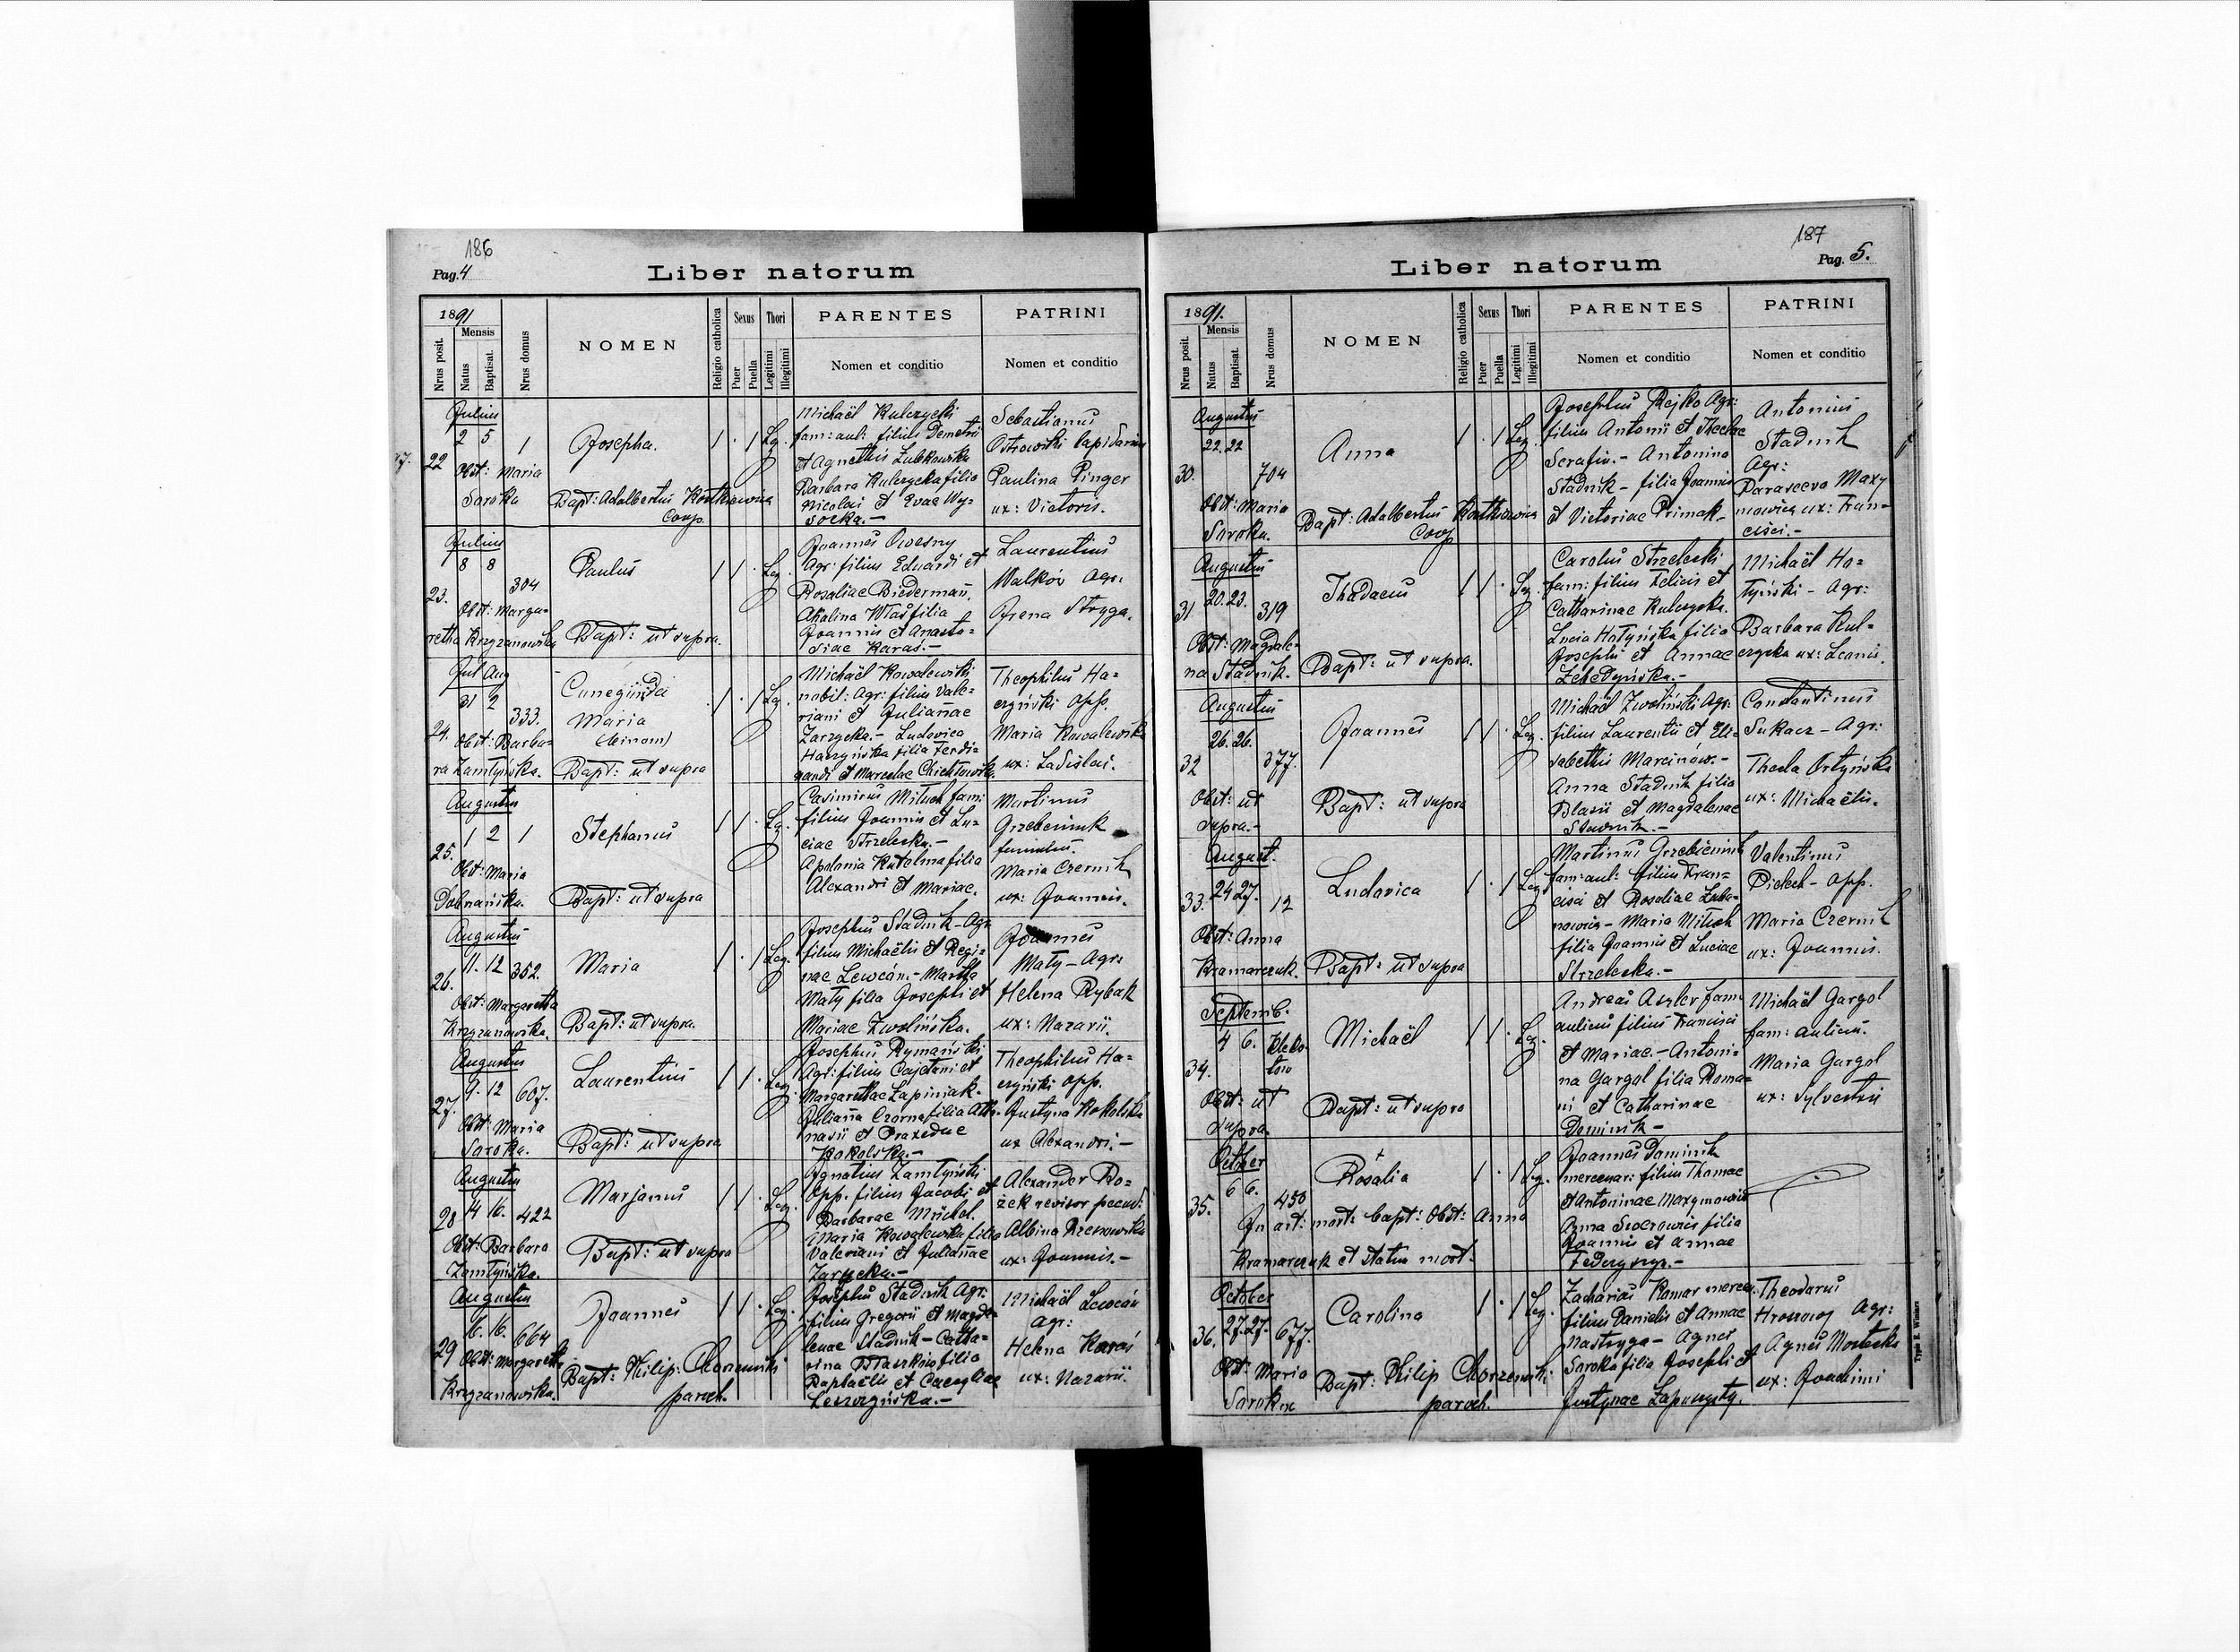 186
Pag. 4
Liber natorum
1891
Mensis
Nrus posit.
Natus
Baptisat.
Nrus domus
NOMEN
Religio catholica
Sexus
Puer
Puella
Thori
Legitimi
Illegitimi
PARENTES
Nomen et conditio
PATRINI
Nomen et conditio
Julius
2 5
1
22
Obst: Maria
Saroka
Josepha.
Bapt: Adalbertus Kostkiewicz
Coop.
1 . 1 Leg.
Michaël Kulczycki
fam: aul: filius Demetrii
et Agnethis Zubkowska
Barbara Kulczycka filia
Nicolai et Evae Wy-
socka.-
Sebastianus
Ostrowski lapidarius
Paulina Pinger
ux: Victoris.
Julius
8 8
304
23.
Obst: Marga-
retha Krzyzanowska
Paulus
Bapt: ut supra.
1 1 . Leg.
Joannes Owesny
Agr: filius Eduardi et
Rosaliae Biederman.
Akilina Wlas filia
Joannis et Anasta-
siae Karas.-
Laurentius
Walków Agr:
Irena Stryga.
Jul Aug
31 2
333.
24.
Obst: Barba-
ra Zamlyńska.
Cunegunda
Maria
(binom)
Bapt: ut supra
1 . 1 Leg.
Michaël Kowalewski
nobil: Agr: filius Vale-
riani et Julianae
Zarzycka.- Ludovica
Haczyńska filia Ferdi-
nandi et Marcelae
Theophilus Ha-
czyński opp.
Maria Kowalewska
ux: Ladislai.
Augustus
1 2 1
25.
Obst: Maria
Stephanus
Bapt: ut supra
1 1 . Leg.
Casimirus Mituch fam:
filius Joannis et Lu-
ciae Strzelecka.-
Apolonia Kutelma filia
Alexandri et Mariae.
Martinus
Grzebieniuk
famulus.
Maria Czernik
ux: Joannis.
Augustus
11. 12 352.
26.
Obst: Margaretha
Krzyzanowska.
Maria
Bapt: ut supra.
1 . 1 Leg.
Josephus Stadnik - Agr:
filius Michaëlis et Regi-
nae Lewcán.- Martha
Maty filia Josephi et
Mariae Zwolińska.
Joannes
Maty - Agr:
Helena Rybak
ux: Nazarii.
Augustus
9. 12 607.
27.
Obst: Maria
Saroka.
Laurentius
Bapt: ut supra
1 1 . Leg.
Josephus Rymański
Agr: filius Cajetani et
Margarethae Lapiniak.
Juliana Czorna filia Atha-
nasii et Praxedae
Kokolska.-
Theophilus Ha-
czyński opp.
Justyna Kokolska
ux Alexandri.-
Augustus
14 16. 422
28
Obst: Barbara
Zamlyńska.
Marjanus
Bapt: ut supra
1 1 . Leg.
Ignatius Zamłyński
Opp. filius Jacobi et
Barbarae Michel.
Maria Kowalewska filia
Valeriani et Julianae
Zarycka.-
Alexander Bo-
żek revisor pecud:
Albina Rzenowska
ux: Joannis.-
Augustus
16. 16. 664
29
Obst: Margareth
Krzyzanowska.
Joannes
Bapt: Philip: Chorzemski
paroch.
1 1 . Leg.
Josephus Stadnik Agr:
filius Gregorii et Magda-
lenae Stadnik - Catha-
rina filia
Raphaëlis et Caeciliae
Leszczyńska.-
Michaël Lewcán
Agr:
Helena Karaś
ux: Nazarii.
187
Pag. 5.
Liber natorum
1891.
Mensis
Nrus posit.
Natus
Baptisat.
Nrus domus
NOMEN
Religio catholica
Sexus
Puer
Puella
Thori
Legitimi
Illegitimi
PARENTES
Nomen et conditio
PATRINI
Nomen et conditio
Augustus
22. 22
704
30.
Obst: Maria
Saroka.
Anna
Bapt: Adalbertus Kostkiewicz
Coop
1 . 1 Leg.
Josephus Rejko Agr:
filius Antonii et Theclae
Serafin.- Antonina
Stadnik - filia Joannis
et Victoriae Primak.
Antonius
Stadnik
Agr:
Parasceva Maxy-
mowicz ux: Fran-
cisci.-
Augustus
20. 23. 319
31
Obst: Magdale-
na Stadnik.
Thadaeus
Bapt: ut supra.
1 1 . Leg.
Carolus Strzelecki
fam: filius Felicis et
Catharinae Kulczycka.
Lucia Hatyńska filia
Josephi et Annae
Michaël Ha-
tyński - Agr:
Barbara Kul-
czycka ux: Leonis.
Augustus
26. 26.
377.
32
Obst: ut
supra.-
Joannes
Bapt: ut supra
1 1 . Leg.
Michaël Zwoliński Agr:
filius Laurentii et Eli-
sabethis Marcinów.-
Anna Stadnik filia
Blasii et Magdalenae
Stadnik.-
Constantinus
Sukacz - Agr:
Thecla Ortyńska
ux: Michaëlis.
August.
24 27. 12
33.
Obst: Anna
Kramarczuk.
Ludovica
Bapt: ut supra
1 . 1 Leg
Martinus Grzebieniuk
fam: aul: filius Fran-
cisci et Rosaliae Laba-
nowicz - Maria Mituch
filia Joannis et Luciae
Strzelecka.-
Valentinus
Pielech - opp.
Maria Czernik
ux: Joannis.
Septemb.
4 6.
34.
Obst: ut
supra.
Michaël
Bapt: ut supra
1 1 . Leg.
Andreas Aszler fam:
aulicus filius Francisci
et Mariae.- Antoni-
na Gargol filia Roma-
ni et Catharinae
Dominik -
Michaël Gargol
fam: aulicus.
Maria Gargol
ux: Sylvestri
October
6 6. 450
35.
Rosalia
In art: mort: bapt: Obst: Anna
Kramarczuk et statim mort:
1 . 1 Leg.
Joannes Dominik
mercenar: filius Thomae
et Antoninae Maxymowicz
Anna filia
Joannis et Annae
October
27. 27. 677.
36.
Obst: Maria
Saroka
Carolina
Bapt: Philip Chorzemski:
paroch.
1 . 1 Leg.
Zacharias Komar mercen.
filius Danielis et Annae
Nastryga - Agnes
Saroka filia Josephi et
Justynae
Theodorus
Agr:
Agnes
ux: Joachimi